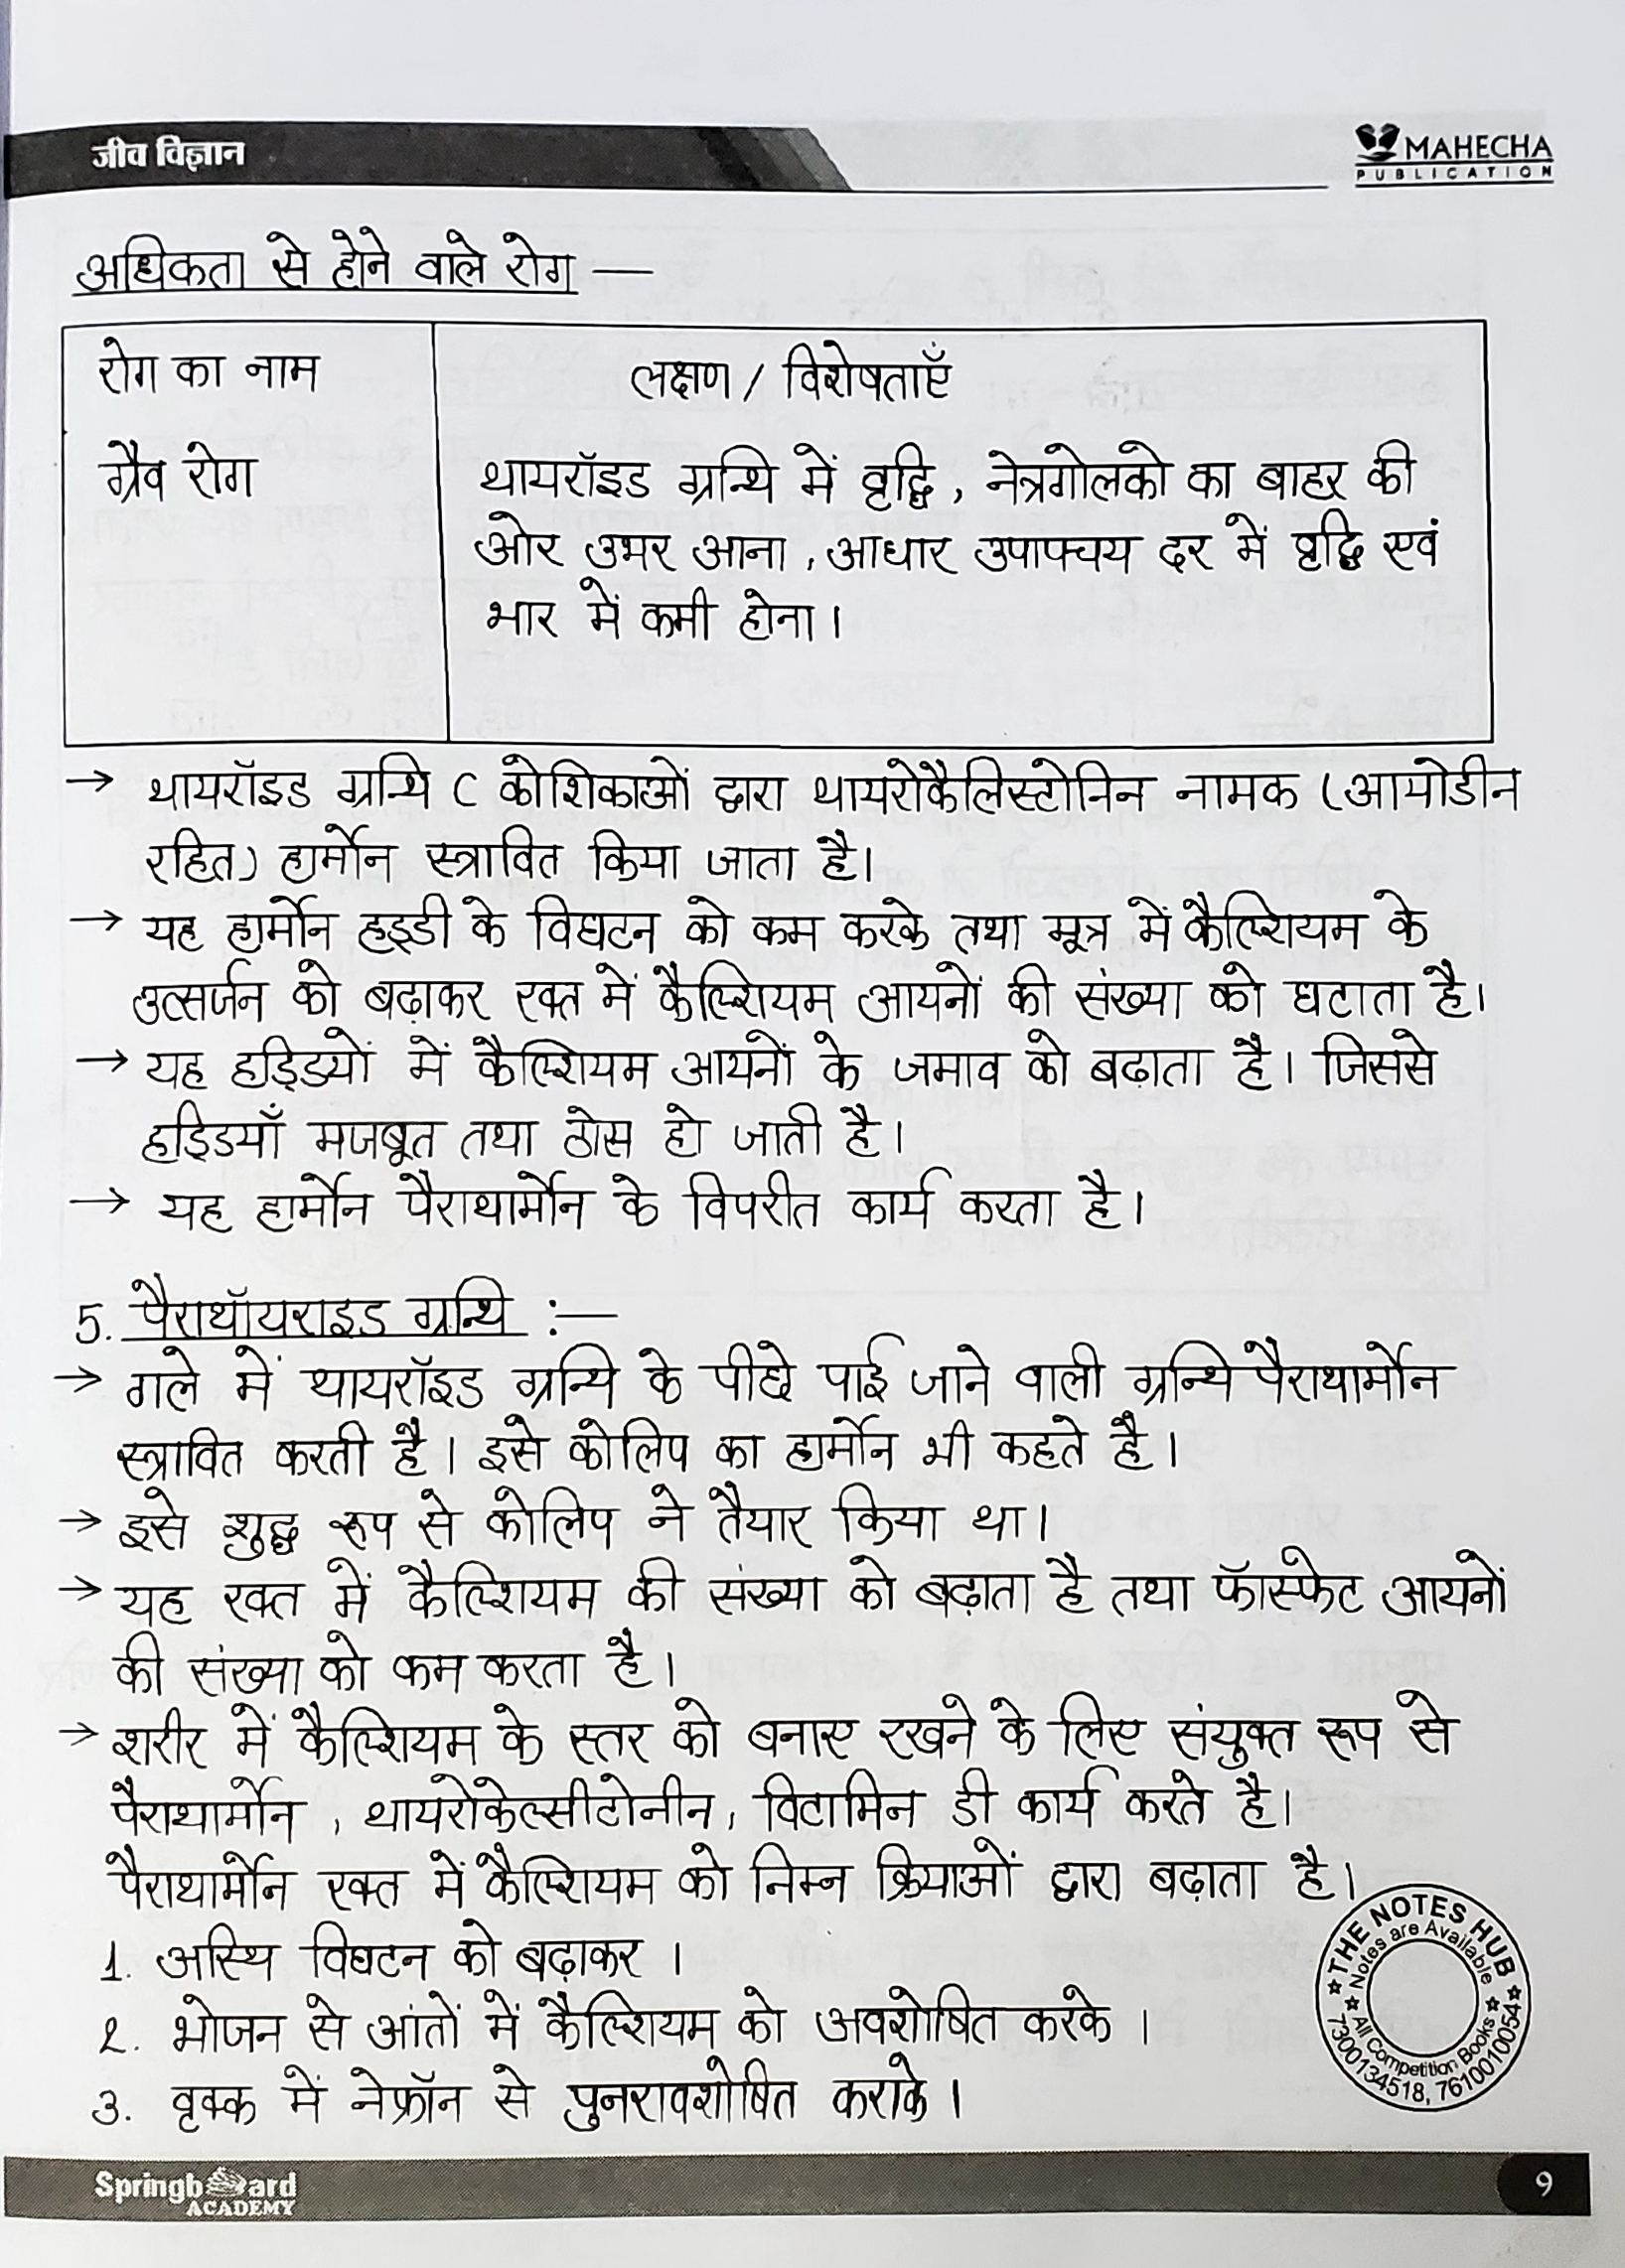 जीव विज्ञान
MAHECHA
PUBLICATION
अधिकता से होने वाले रोग —
रोग का नाम
लक्षण / विशेषताएँ
ग्रैव रोग
थायरॉइड ग्रन्थि में वृद्धि, नेत्रगोलको का बाहर की
ओर उभर आना, आधार उपापचय दर में वृद्धि एवं
भार में कमी होना।
→ थायरॉइड ग्रन्थि C कोशिकाओं द्वारा थायरोकैलिस्टोनिन नामक (आयोडीन
रहित) हार्मोन स्त्रावित किया जाता है।
→ यह हार्मोन हड्डी के विघटन को कम करके तथा मूत्र में कैल्शियम के
उत्सर्जन को बढ़ाकर रक्त में कैल्शियम आयनों की संख्या को घटाता है।
→ यह हड्डियों में कैल्शियम आयनों के जमाव को बढ़ाता है। जिससे
हड्डियाँ मजबूत तथा ठोस हो जाती है।
→ यह हार्मोन पैराथार्मोन के विपरीत कार्य करता है।
5. पैराथॉयराइड ग्रन्थि :—
→ गले में थायरॉइड ग्रन्थि के पीछे पाई जाने वाली ग्रन्थि पैराथार्मोन
स्त्रावित करती है। इसे कोलिप का हार्मोन भी कहते है।
→ इसे शुद्ध रूप से कोलिप ने तैयार किया था।
→ यह रक्त में कैल्शियम की संख्या को बढ़ाता है तथा फॉस्फेट आयनों
की संख्या को कम करता है।
→ शरीर में कैल्शियम के स्तर को बनाए रखने के लिए संयुक्त रूप से
पैराथार्मोन, थायरोकेल्सीटोनीन, विटामिन डी कार्य करते है।
पैराथार्मोन रक्त में कैल्शियम को निम्न क्रियाओं द्वारा बढ़ाता है।
1. अस्थि विघटन को बढ़ाकर।
2. भोजन से आंतों में कैल्शियम को अवशोषित करके।
3. वृक्क में नेफ्रॉन से पुनरावशोषित कराके।
THE NOTES HUB
Notes are Available
All Competition Books
7300134518, 7610010054
Springboard
ACADEMY
9